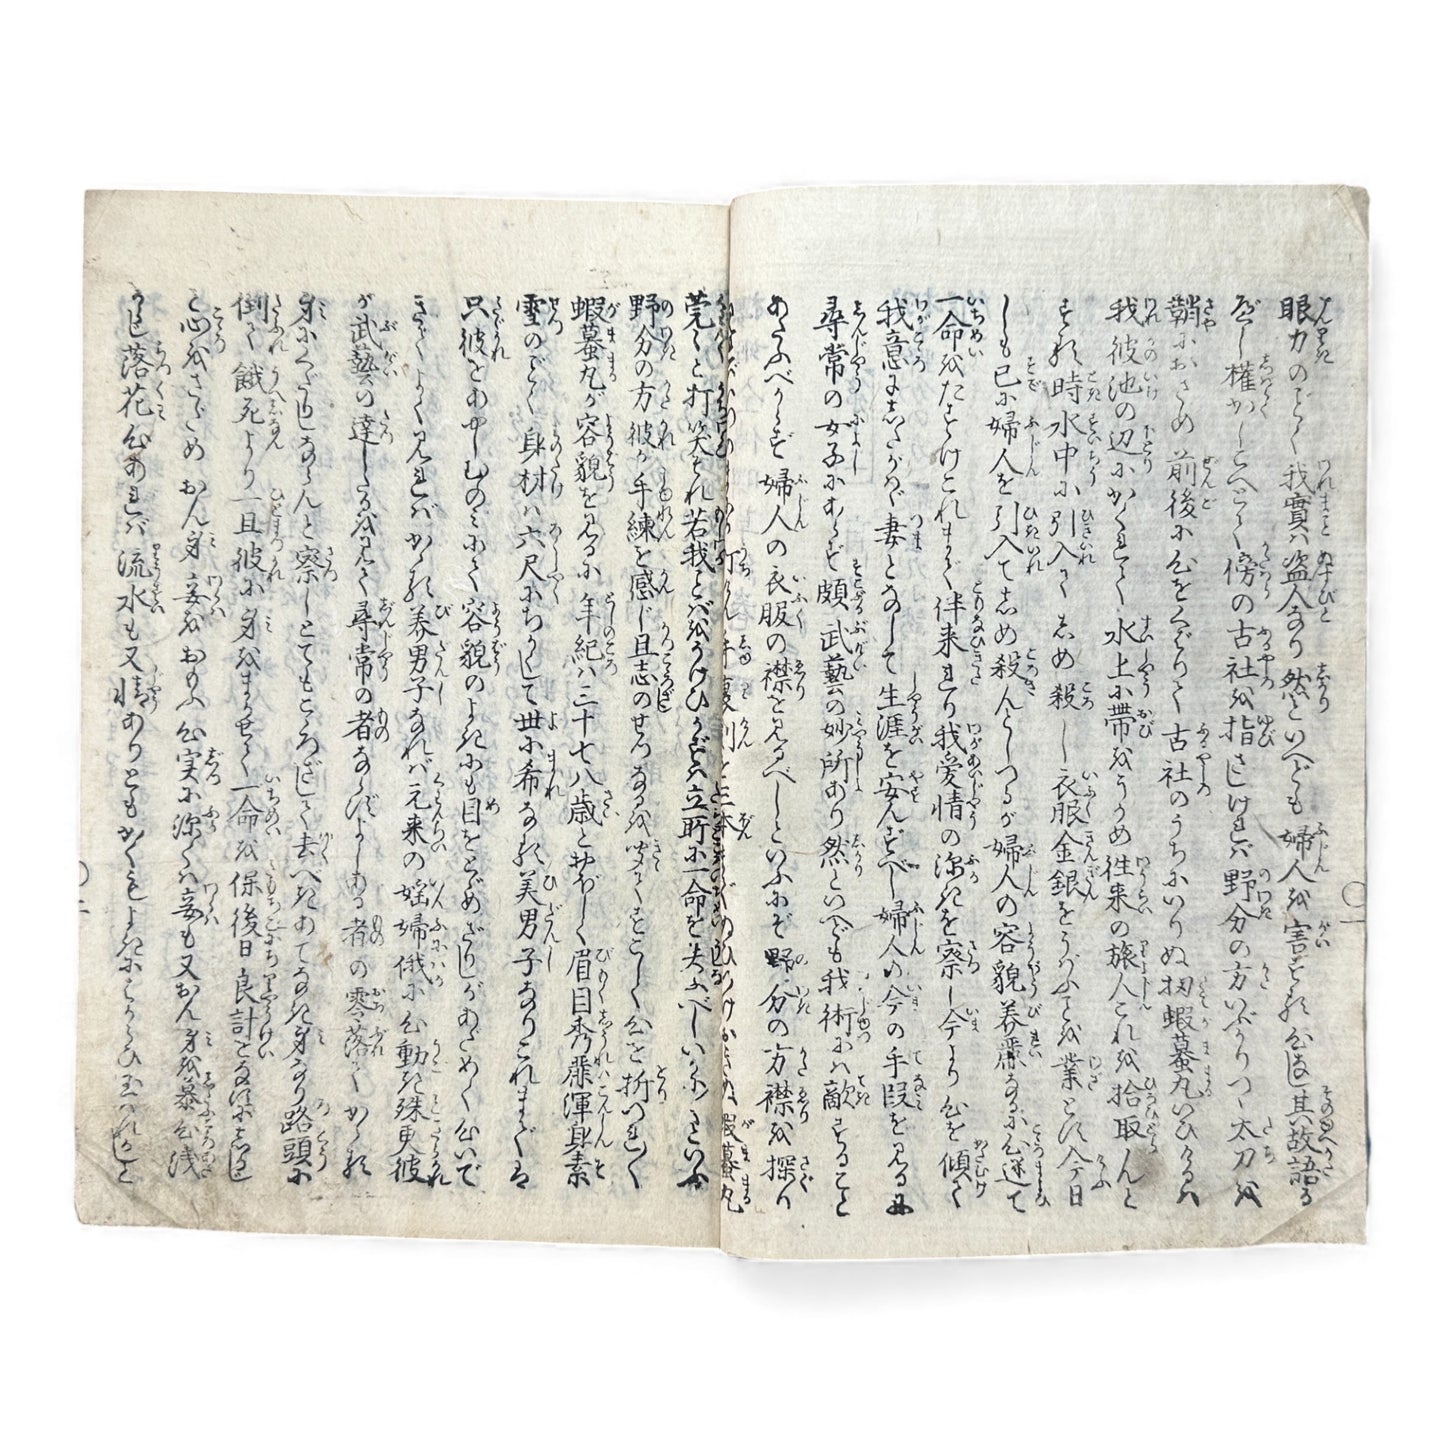 眼力のごとく我實は盗人なり然といへども婦人を害する心なし其故語る
べし權かしこへとて傍の古社を指さしければ野分の方いぶかりつゝ太刀を
鞘におさめ前後に心をくばりて古社のうちにいりぬ扨蝦蟇丸いひけるは
我彼池の辺にかくれて水上に帯をうかめ往来の旅人これを拾取んと
する時水中に引入てしめ殺し衣服金銀をうばふことを業とす今日
しも已に婦人を引入てしめ殺んとしつるが婦人の容貌美麗なるに心迷て
一命をたすけこれまで伴来れり我愛情の深きを察し今より心を傾て
我意にしたがひ妻となりて生涯を安んずべし婦人の今の手段を見るに
尋常の女子にあらず頗武藝の妙所あり然といへども我術には敵すること
あたふべからず婦人の衣服の襟を見るべしといふにぞ野分の方襟を探り
蝦蟇丸
莞々と打笑それ若我ことばをうけひかずは立所に一命を失ふべしいかに〳〵といふ
野分の方彼が手練を感じ且志のせつなるを聞てすこし心を折つれ〴〵
蝦蟇丸が容貌を見るに年紀は三十七八歳とおぼしく眉目秀麗渾身素
雪のごとく身材は六尺にちかくして世に希なる美男子なりこれまでは
只彼をあやしむのみにて容貌のよきにも目をとゞめざりしがあだめく心いで
きてよく〳〵見ればかゝる美男子なれば元来の婬婦俄に心動き殊更彼
が武藝の達したるを見て尋常の者ならずよしある者の零落てかゝる
身にくだりしならんと察しとてもこゝろざして去べきあてなき身なり路頭に
倒て餓死より一旦彼に身をまかせて一命を保後日良計をなすにしかじ
と心をさだめおん身妾をおもふ心実に深くは妾も又おん身を慕心浅
からじ落花心あれば流水も又情ありともかくもよきにはからひ玉はれかしと